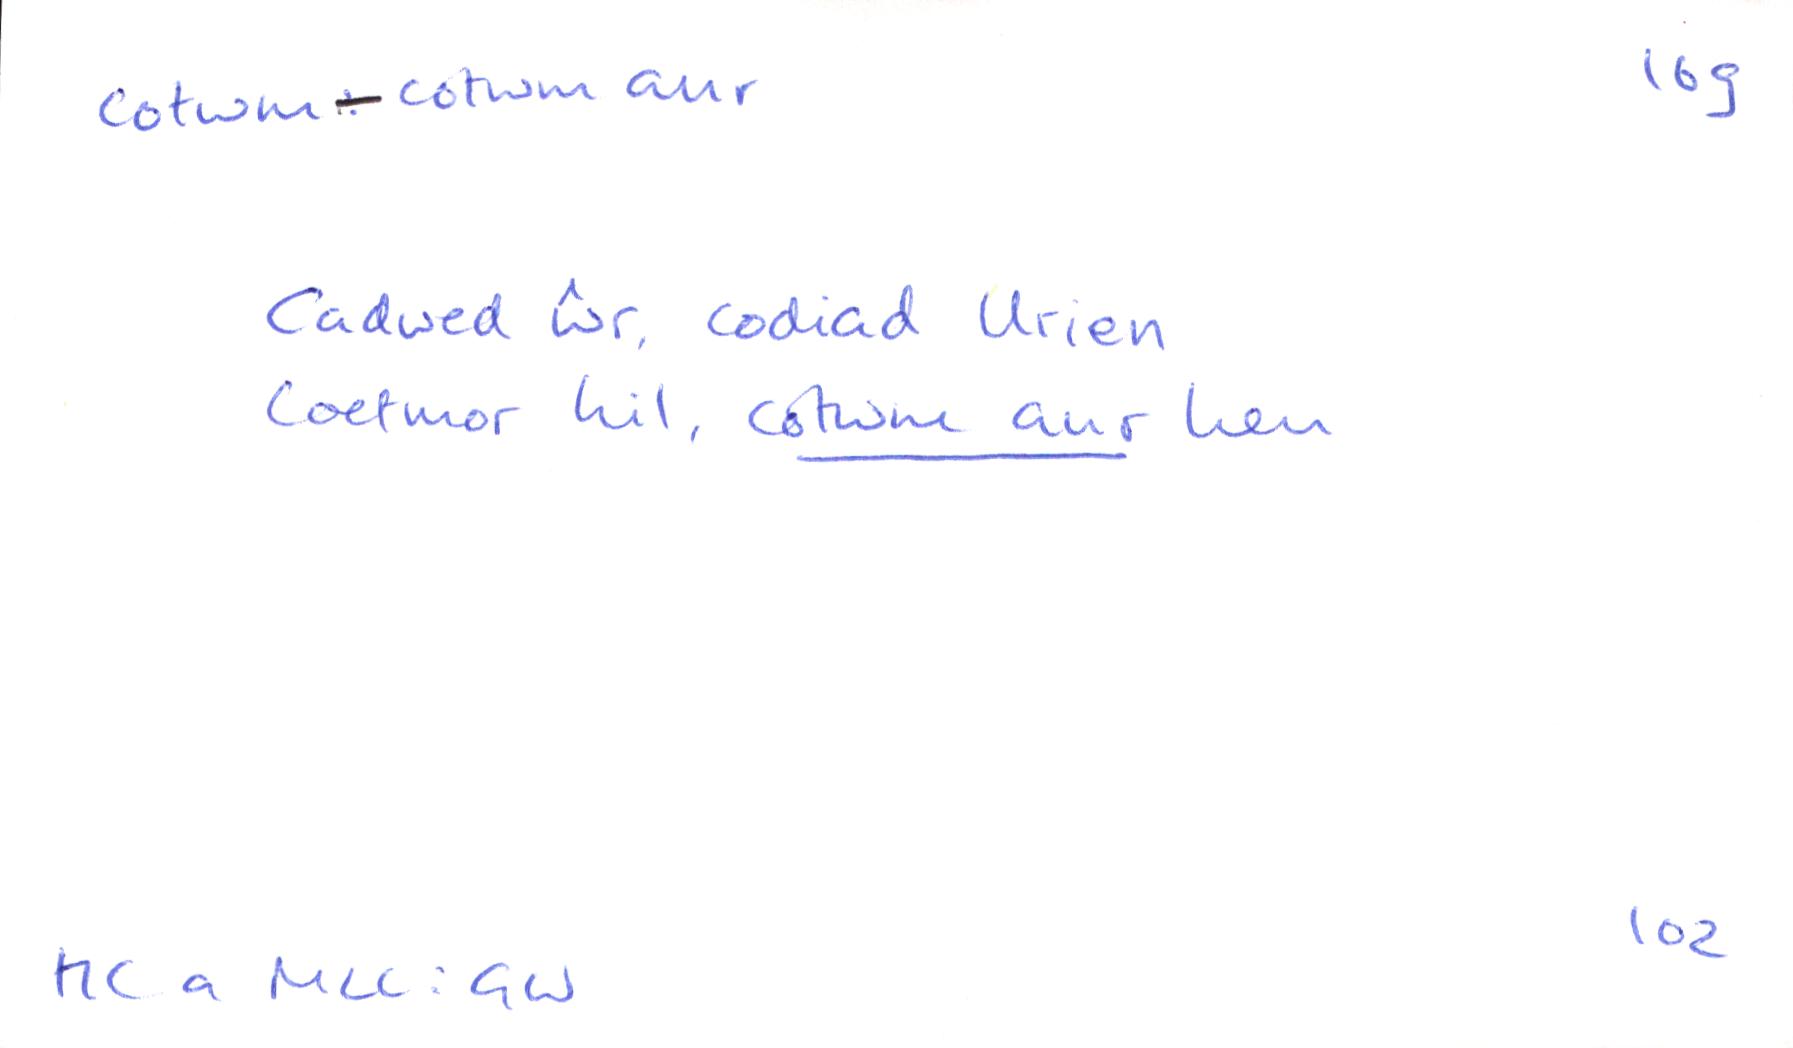 cotwm - cotwm aur 16g
Cadwed ŵr, codiad Urien
Coetmor hil, cotwm aur hen
102
HC a MLLC: GW